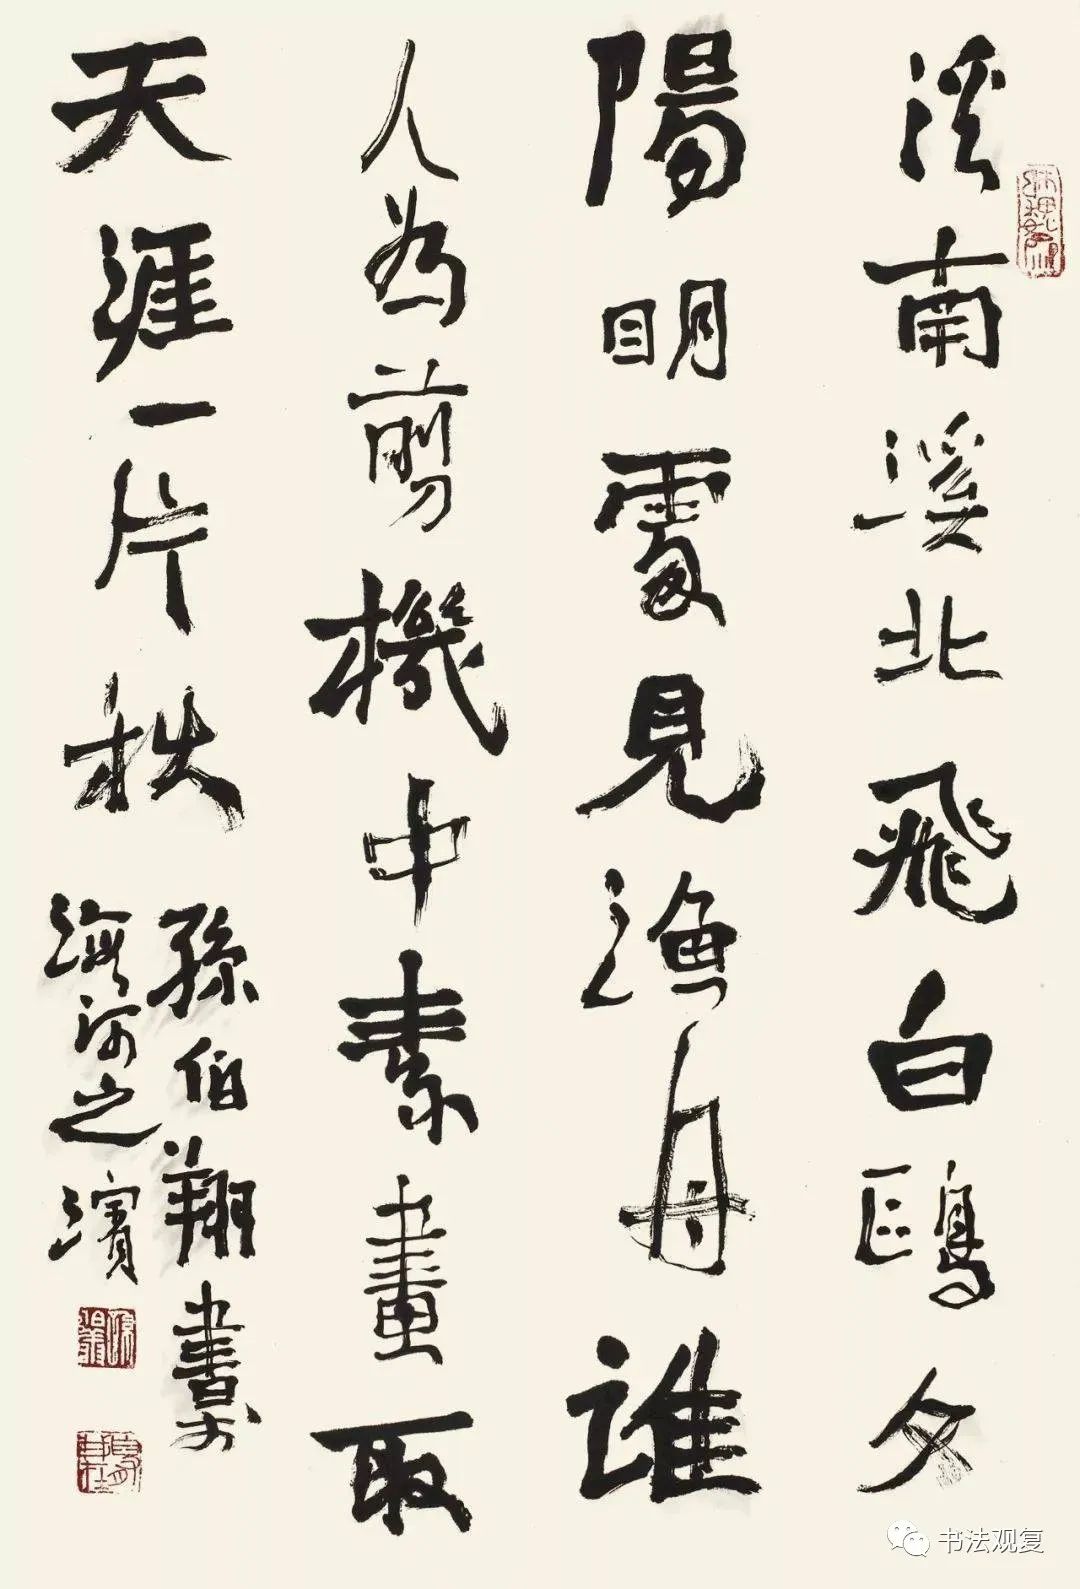 溪南溪北飛白鷗夕
陽明處見漁舟誰
人為剪機中素畫取
天涯一片秋
孫伯翔書於
海河之濱
书法观复